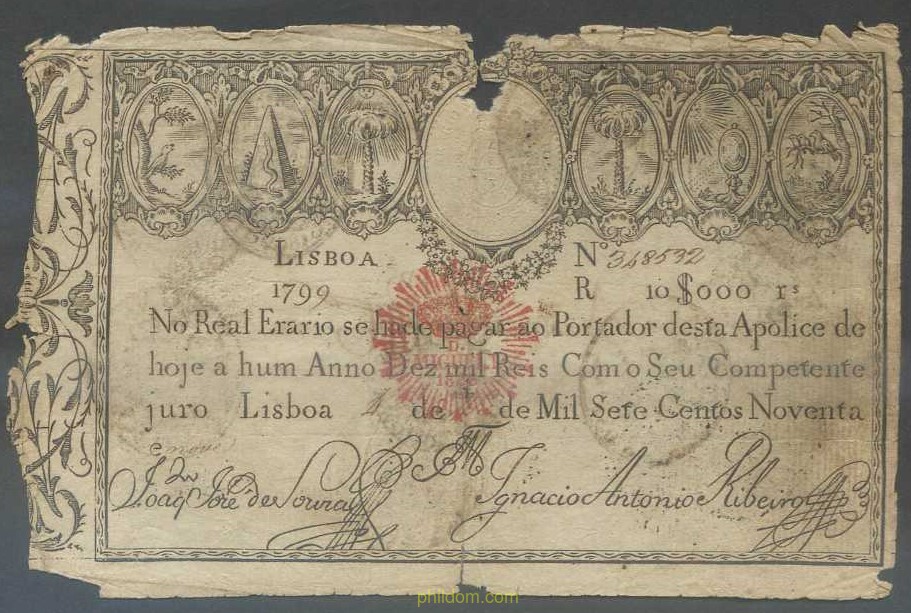 LISBOA
Nº 348532
1799
R 10$000 rˢ
No Real Erario se hade pagar ao Portador desta Apolice de
hoje a hum Anno Dez mil Reis Com o Seu Competente
juro Lisboa 1 de de Mil Sete Centos Noventa
e nove
D.
MIGUEL
Joaqᵐ Jose de Souza
Ignacio Antonio Ribeiro
phildom.com